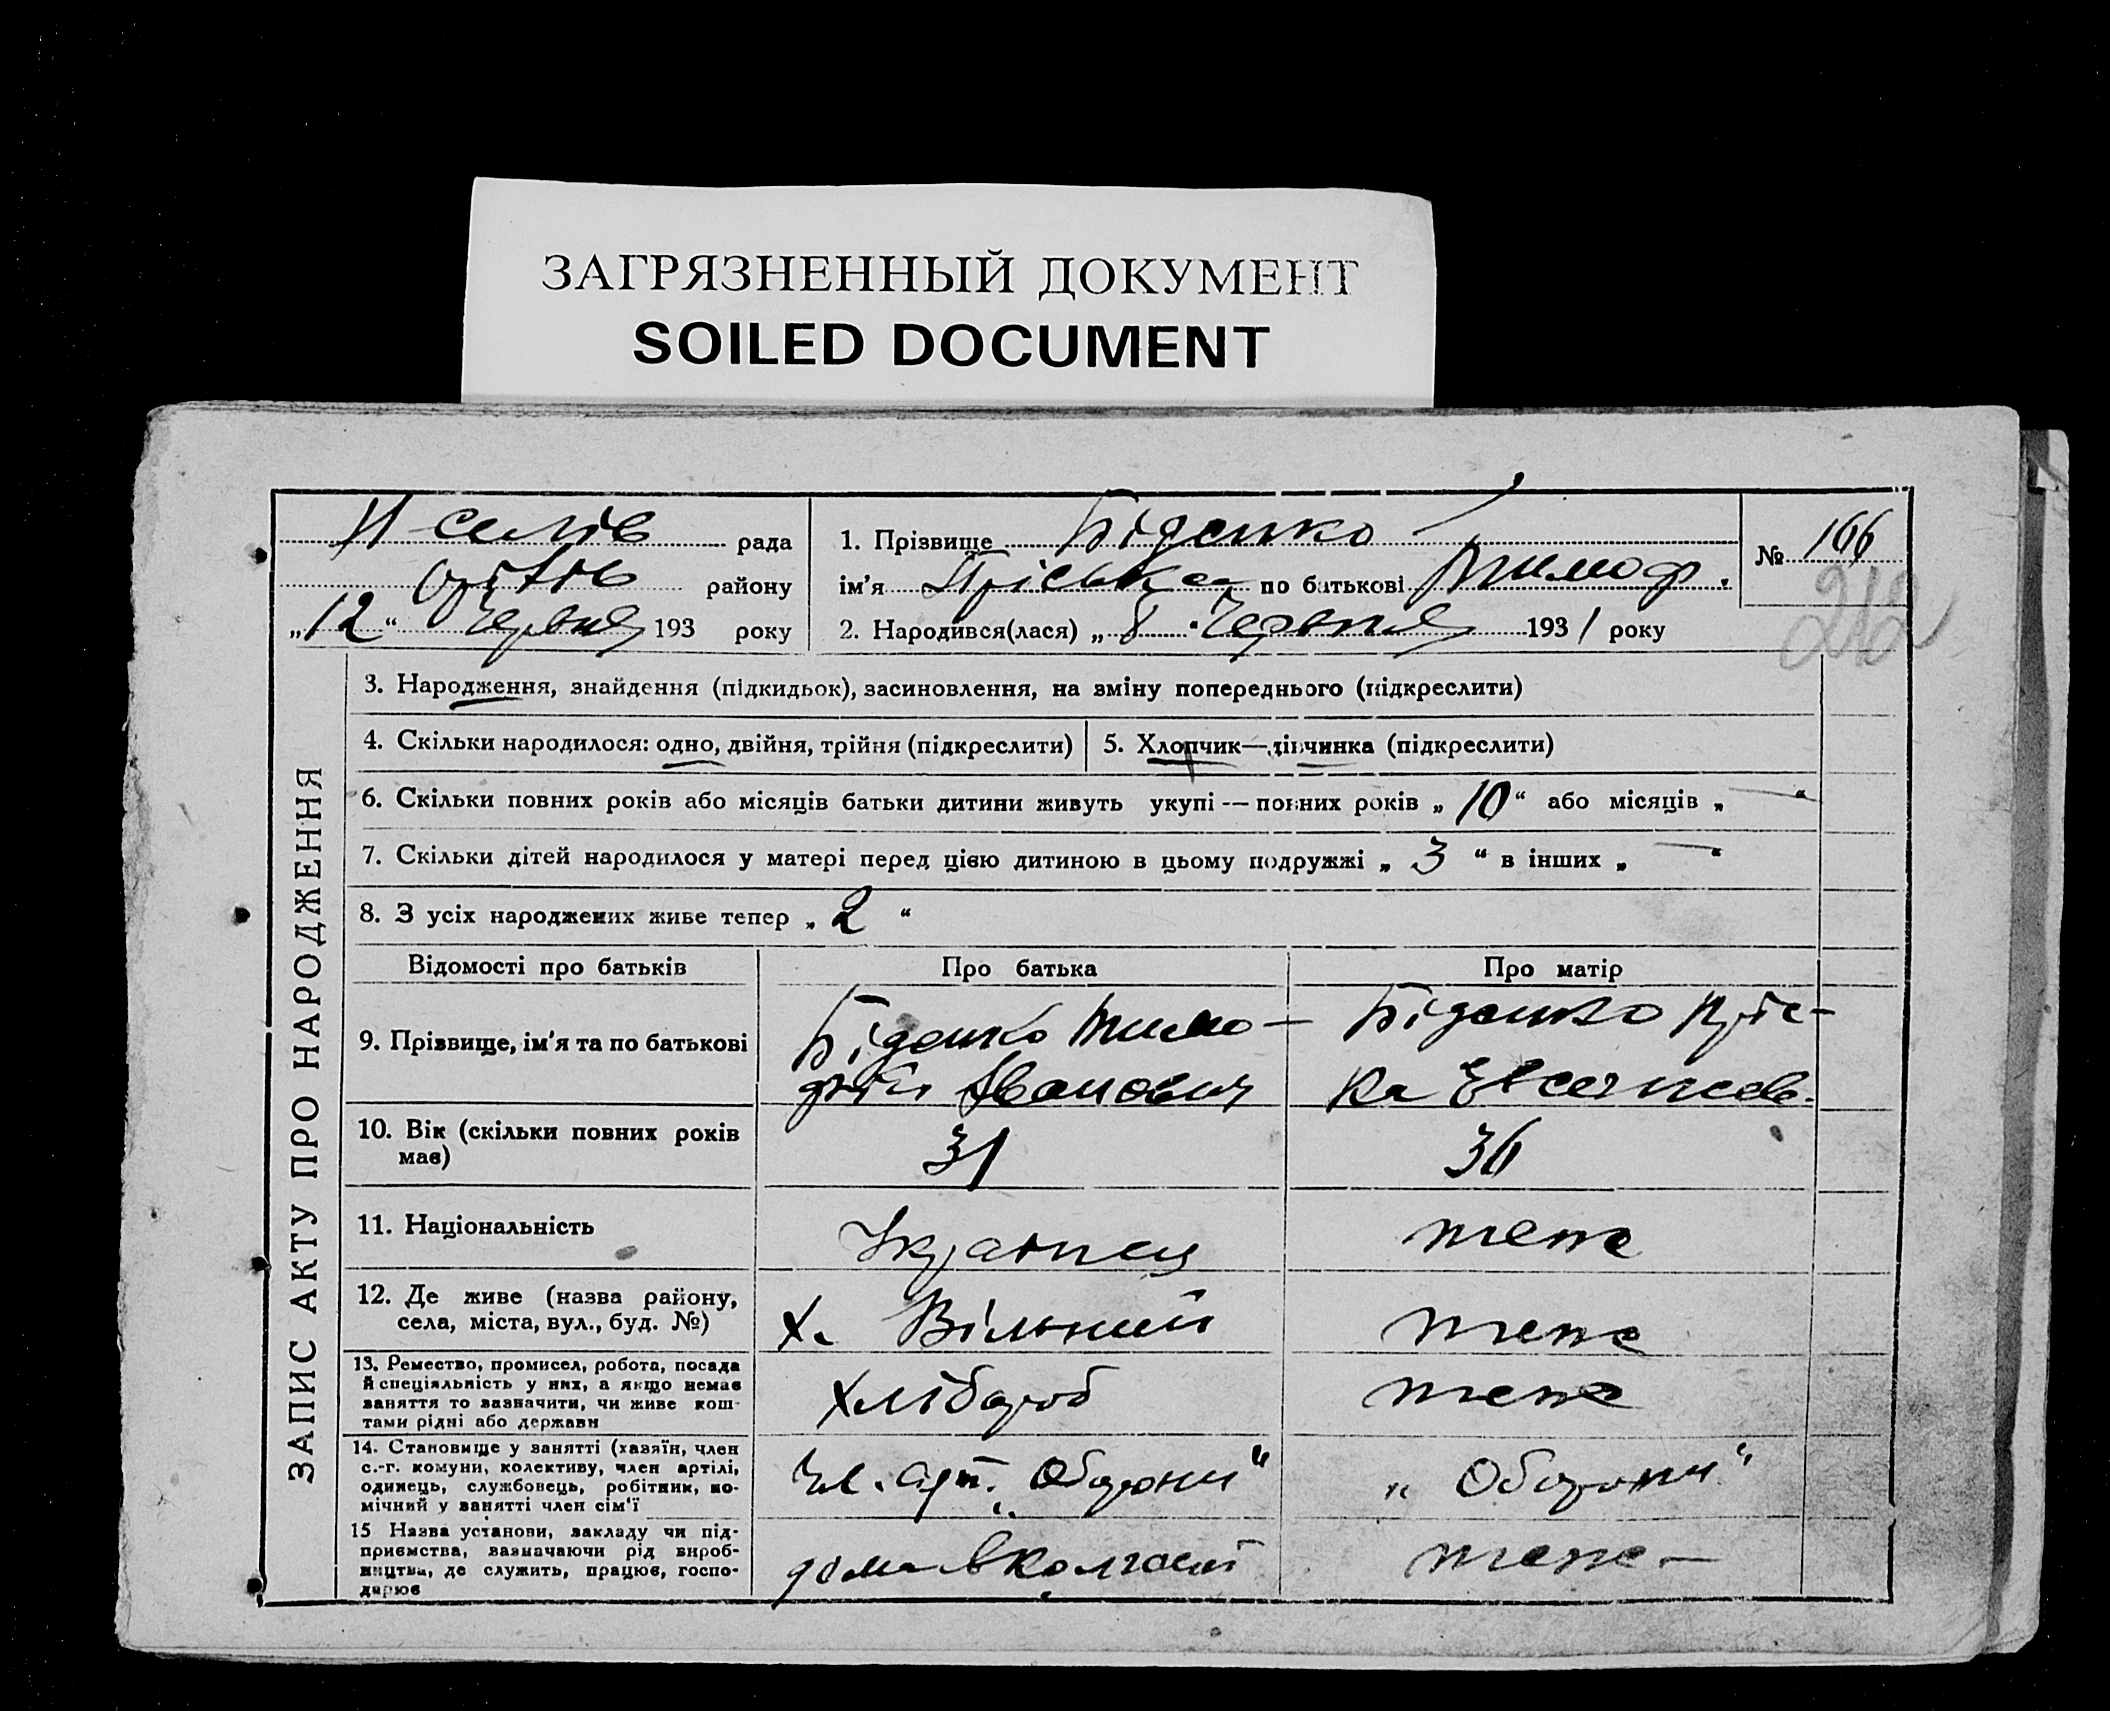 ЗАГРЯЗНЕННЫЙ ДОКУМЕНТ
SOILED DOCUMENT
рада
району
„12“ Червня 193 року
1. Прізвище Біденко
ім'я Пріська по батькові Тимоф.
2. Народився(лася) „8“ Червня 1931 року
№ 166
212
ЗАПИС АКТУ ПРО НАРОДЖЕННЯ
3. Народження, знайдення (підкидьок), засиновлення, на зміну попереднього (підкреслити)
4. Скільки народилося: одно, двійня, трійня (підкреслити)
5. Хлопчик—дівчинка (підкреслити)
6. Скільки повних років або місяців батьки дитини живуть укупі — повних років „10“ або місяців „—“
7. Скільки дітей народилося у матері перед цією дитиною в цьому подружжі „3“ в інших „—“
8. З усіх народжених живе тепер „2“
Відомості про батьків
Про батька
Про матір
9. Прізвище, ім'я та по батькові
Біденко Тимо-
фій Іванович
Біденко Пріс-
ка
10. Вік (скільки повних років
має)
31
36
11. Національність
Українец
теже
12. Де живе (назва району,
села, міста, вул., буд. №)
х. Вільний
теже
13. Ремество, промисел, робота, посада
й спеціяльність у них, а якщо немає
заняття то зазначити, чи живе кош-
тами рідні або держави
Хлібороб
теже
14. Становище у занятті (хазяїн, член
с.-г. комуни, колективу, член артілі,
одинець, службовець, робітник, по-
мічний у занятті член сім'ї
Чл. арт. „Оборони“
„Оборони“
15 Назва установи, закладу чи під-
приємства, зазначаючи рід вироб-
ництва, де служить, працює, госпо-
дарює
дома в колгоспі
теже —